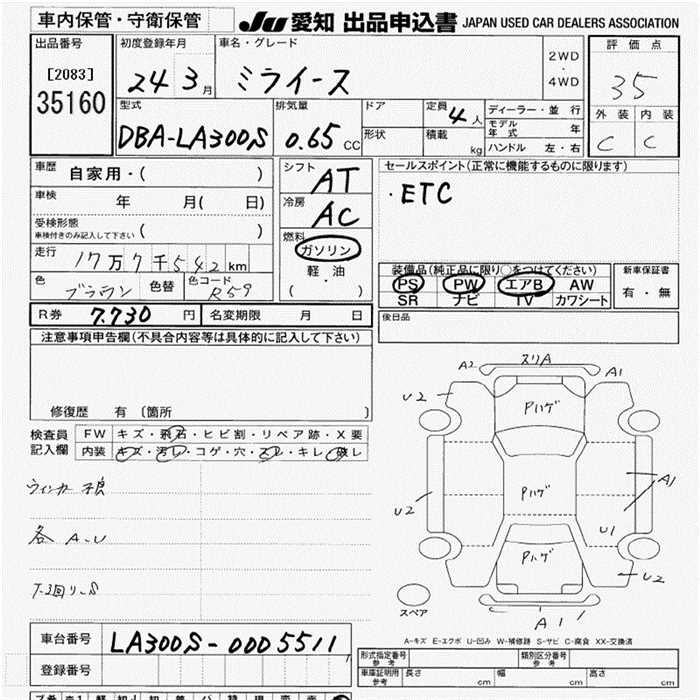 車内保管・守衛保管
JU 愛知 出品申込書 JAPAN USED CAR DEALERS ASSOCIATION
出品番号 初度登録年月 車名・グレード 2WD・4WD 評価点
[2083] 24 3月 ミライース 35
35160
型式 排気量 ドア 定員 4人 ディーラー・並行 外装 内装
DBA-LA300S 0.65 CC 形状 積載 kg モデル年式 年 C C
ハンドル 左・右
車歴 自家用・( ) シフト AT セールスポイント(正常に機能するものに限ります)
車検 年 月( 日) 冷房 AC ・ETC
受検形態 ( )
車検付きのみ記入して下さい
燃料 ガソリン
走行 17万7千542km 軽油 装備品(純正品に限り○をつけてください) 新車保証書
色 ブラウン 色替 色コード R59 ( ・ ) PS PW エアB AW 有・無
SR ナビ TV カワシート
R券 7.730 円 名変期限 月 日 後日品
注意事項申告欄(不具合内容等は具体的に記入して下さい)
修復歴 有〔箇所 〕
検査員記入欄 FW キズ・飛石・ヒビ割・リペア跡・X要
内装 キズ・汚レ・コゲ・穴・スレ・キレ・破レ
ウィンカー不良
各 A-U
A2 スリA A1
U2 Pハゲ U2
Pハゲ A1
U2 U1
Pハゲ U2
スペア A1
A-キズ E-エクボ U-凹み W-補修跡 S-サビ C-腐食 XX-交換済
車台番号 LA300S-0005511
登録番号
形式指定番号 参考 類別区分番号 参考
車庫証明用 参考 長さ cm 幅 cm 高さ cm